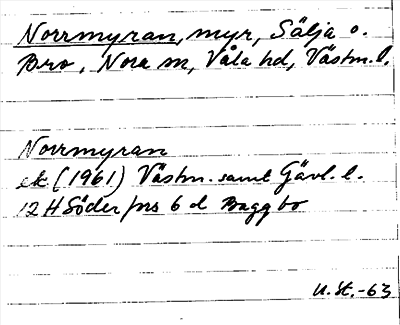 Norrmyran, myr, Sälja o.
Bro, Nora sn, Våla hd, Västm. l.
Norrmyran
ek (1961) Västm. samt Gävl. l.
12 H Söderfors 6 d Baggbo
U. St. -63